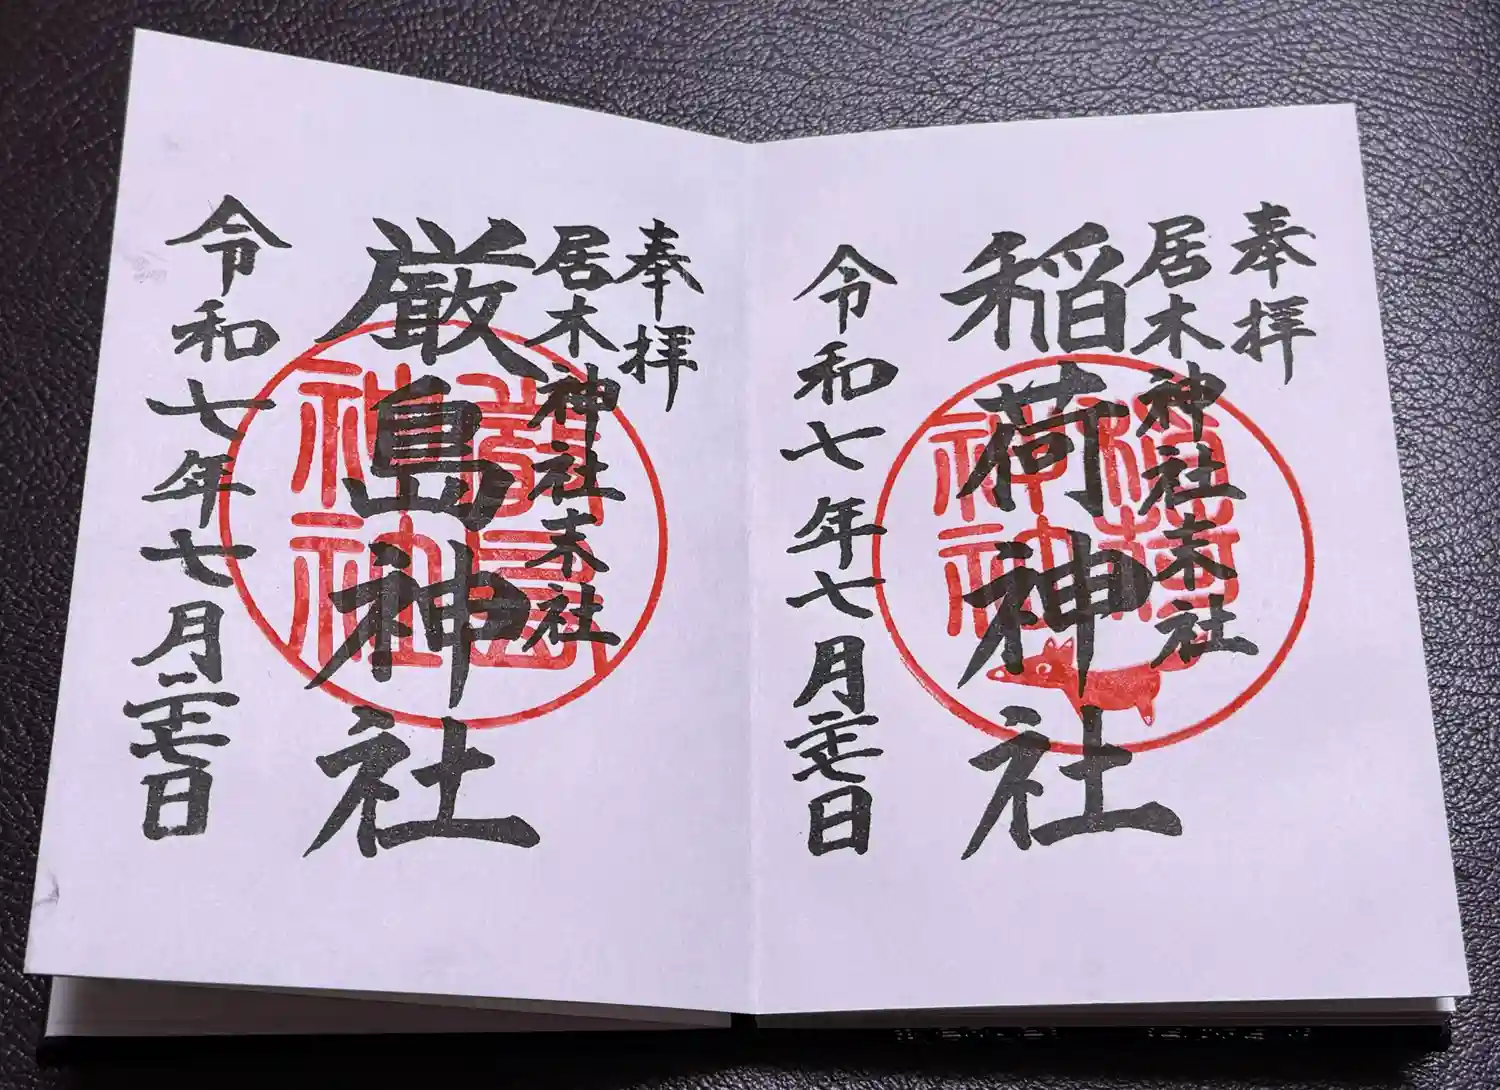 奉拝
居木神社末社
稲荷神社
令和七年七月二十七日
奉拝
居木神社末社
厳島神社
令和七年七月二十七日